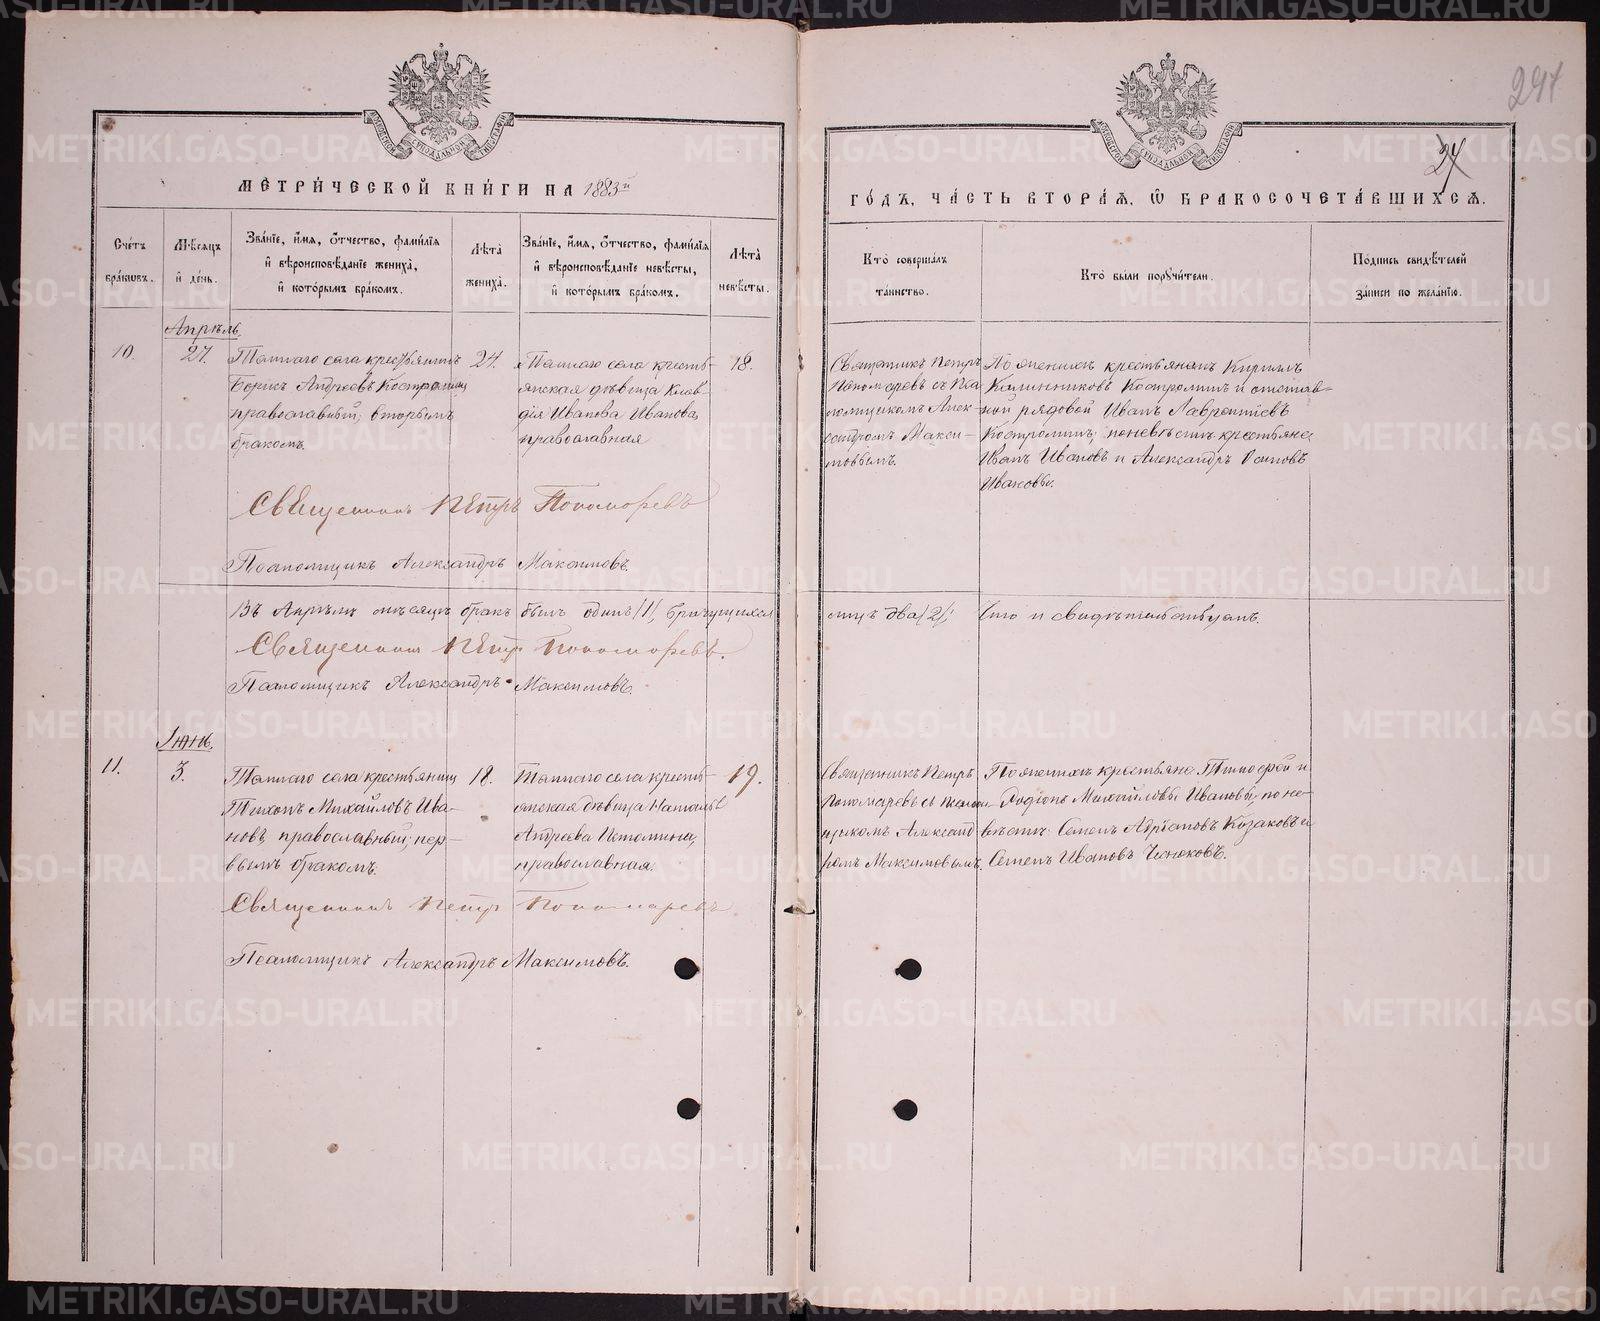 МЕТРИЧЕСКОЙ КНИГИ НА 1883й
ГОДЪ, ЧАСТЬ ВТОРАЯ, Ѿ БРАКОСОЧЕТАВШИХСЯ.
291
27
Счетъ браковъ.
Мѣсяцъ и день.
Званіе, имя, отчество, фамилія и вѣроисповѣданіе жениха, и которымъ бракомъ.
Лѣта жениха.
Званіе, имя, отчество, фамилія и вѣроисповѣданіе невѣсты, и которымъ бракомъ.
Лѣта невѣсты.
Кто совершалъ таинство.
Кто были поручители.
Подпись свидѣтелей записи по желанію.
Апрѣль
10.
27.
Таинаго села крестьянинъ
Борисъ Андреевъ Костроминъ
православный, вторымъ
бракомъ.
24.
села кресть-
янская дѣвица Клав-
дія Иванова Иванова,
православная
18.
Священникъ Петръ
Пономаревъ съ Пса
ломщикомъ Алек-
сандромъ Макси-
мовымъ.
По женихѣ крестьянинъ Кириллъ
Калинниковъ Костроминъ и отстав-
ной рядовой Иванъ Лаврентіевъ
Костроминъ; по невѣстѣ крестьяне
Иванъ Ивановъ и Александръ Осиповъ
Ивановы.
Священникъ Петръ Пономаревъ
Псаломщикъ Александръ Максимовъ.
Въ Апрѣлѣ мѣсяцѣ бракъ былъ одинъ /1/, брачущихся
лицъ два /2/; Что и свидѣтельствуемъ.
Священникъ Петръ Пономаревъ.
Псаломщикъ Александръ Максимовъ.
Іюнь.
11.
3.
села крестьянинъ
Тихонъ Михайловъ Ива-
новъ, православный, пер-
вымъ бракомъ.
18.
села кресть-
янская дѣвица Наталья
Андреева Истомина,
православная.
19.
Священникъ Петръ
Пономаревъ съ Псалом-
щикомъ Александ
ромъ Максимовымъ.
По женихѣ крестьяне Тимофей и
Родіонъ Михайловы Ивановы; по не-
вѣстѣ Семенъ Адріановъ Козаковъ и
Семенъ Ивановъ Чесноковъ.
Священникъ Петръ Пономаревъ
Псаломщикъ Александръ Максимовъ.
METRIKI.GASO-URAL.RU